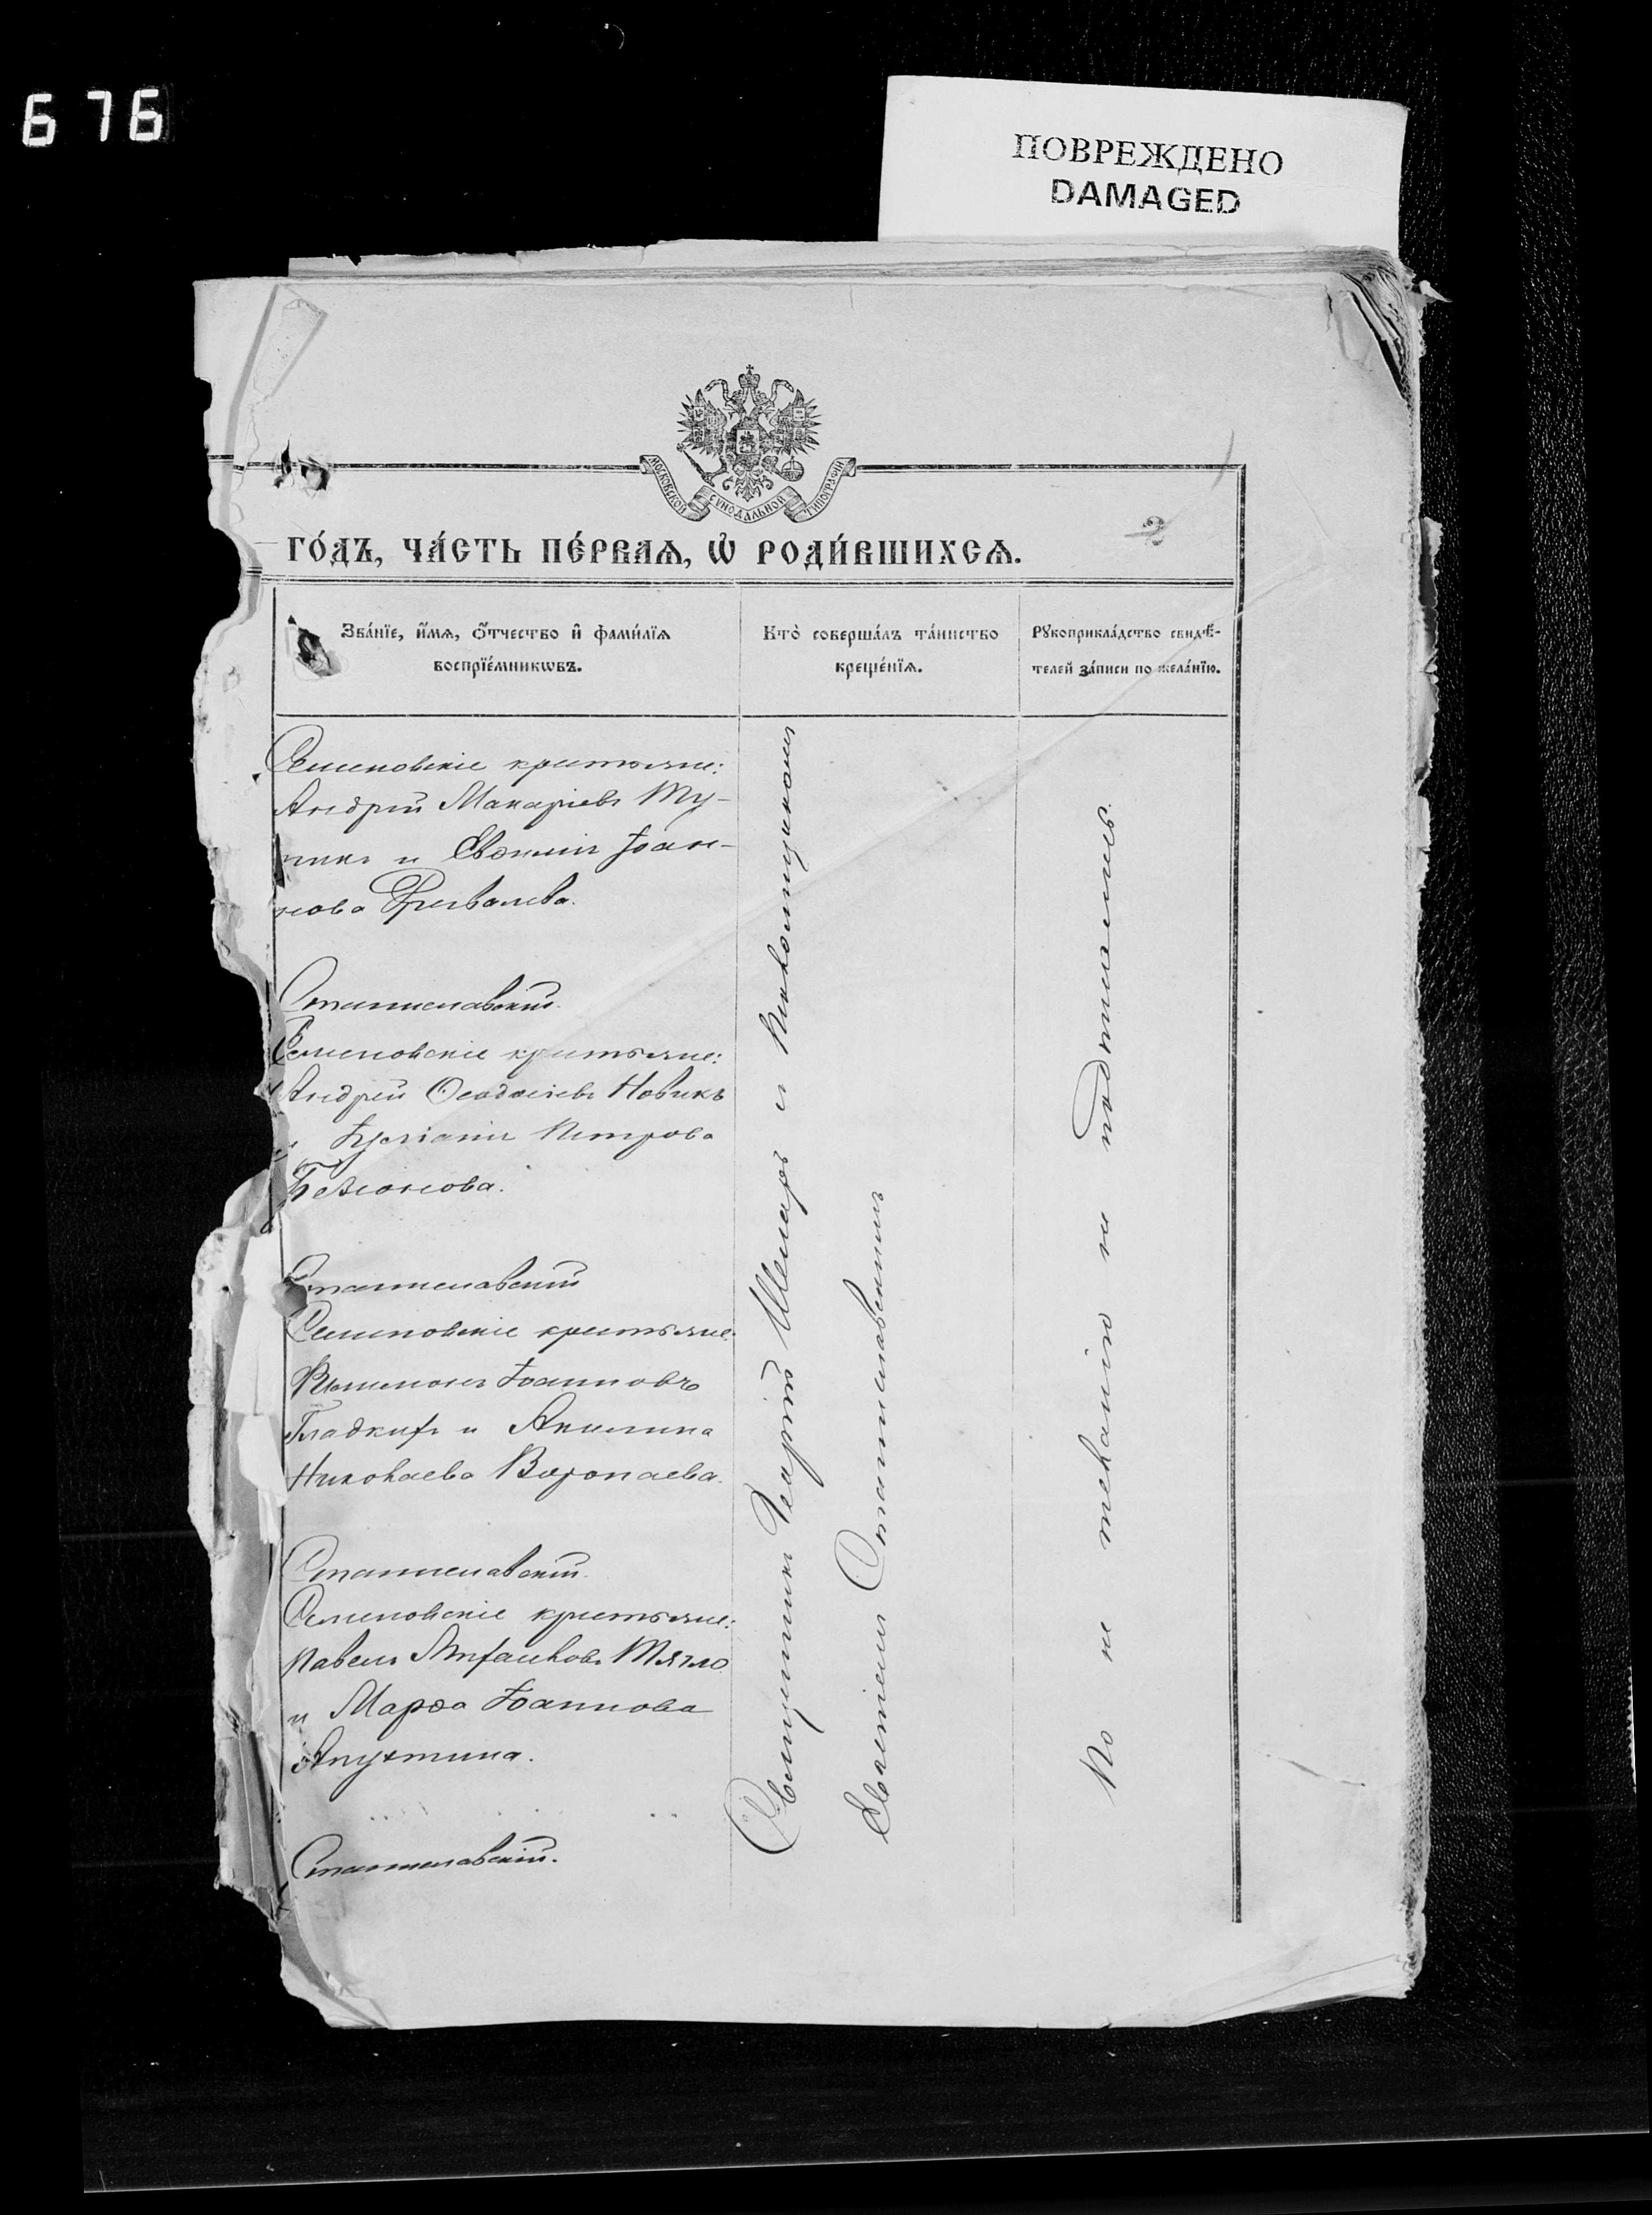 676
ПОВРЕЖДЕНО
DAMAGED
МОСКОВСКОЙ СУНОДАЛЬНОЙ ТИПОГРАФІИ
2
ГО́ДЪ, ЧА́СТЬ ПЕ́РВАѦ, Ѡ҆ РОДИ́ВШИХСѦ.
Зва́нїе, и҆́мѧ, ѻ҆́тчество и҆ фами́лїѧ
воспрїе́мникѡвъ.
Кто̀ соверша́лъ та́инство
креще́нїѧ.
Рꙋкоприкла́дство свидѣ́-
телей за́писи по жела́нїю.
Семеновскіе крестьяне:
Андрей Макаріевъ
и Евѳимія Іоан-
нова
Станиславскій.
Семеновскіе крестьяне:
Андрей Новикъ
Петрова
Станиславскій
Семеновскіе крестьяне:
Филимонъ Іоанновъ
Гладкихъ и Акилина
Николаева Воропаева.
Станиславскій.
Семеновскіе крестьяне:
Павелъ Тягло
и Марѳа Іоаннова
Апухтина.
Станиславскій.
Священникъ Георгій съ Псаломщикомъ
Евгеніемъ Станиславскимъ
По не желанію не подписались.